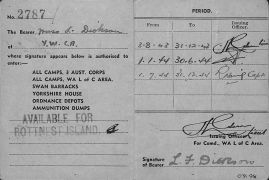 No. 2787
The Bearer Miss L. Dickson
Y.W.C.A.
whose signature appears below is authorised to
enter:—
ALL CAMPS, 3 AUST. CORPS
ALL CAMPS, WA L of C AREA.
SWAN BARRACKS
YORKSHIRE HOUSE
ORDNANCE DEPOTS
AMMUNITION DUMPS
AVAILABLE FOR
ROTTNEST ISLAND.
PERIOD.
From To Issuing Officer.
3-8-43 31-12-43
1-1-44 30-6-44
1.7.44 31.12.44 Capt
Issuing Officer,
For Comd., WA L of C Area.
Signature of Bearer. L F Dickson